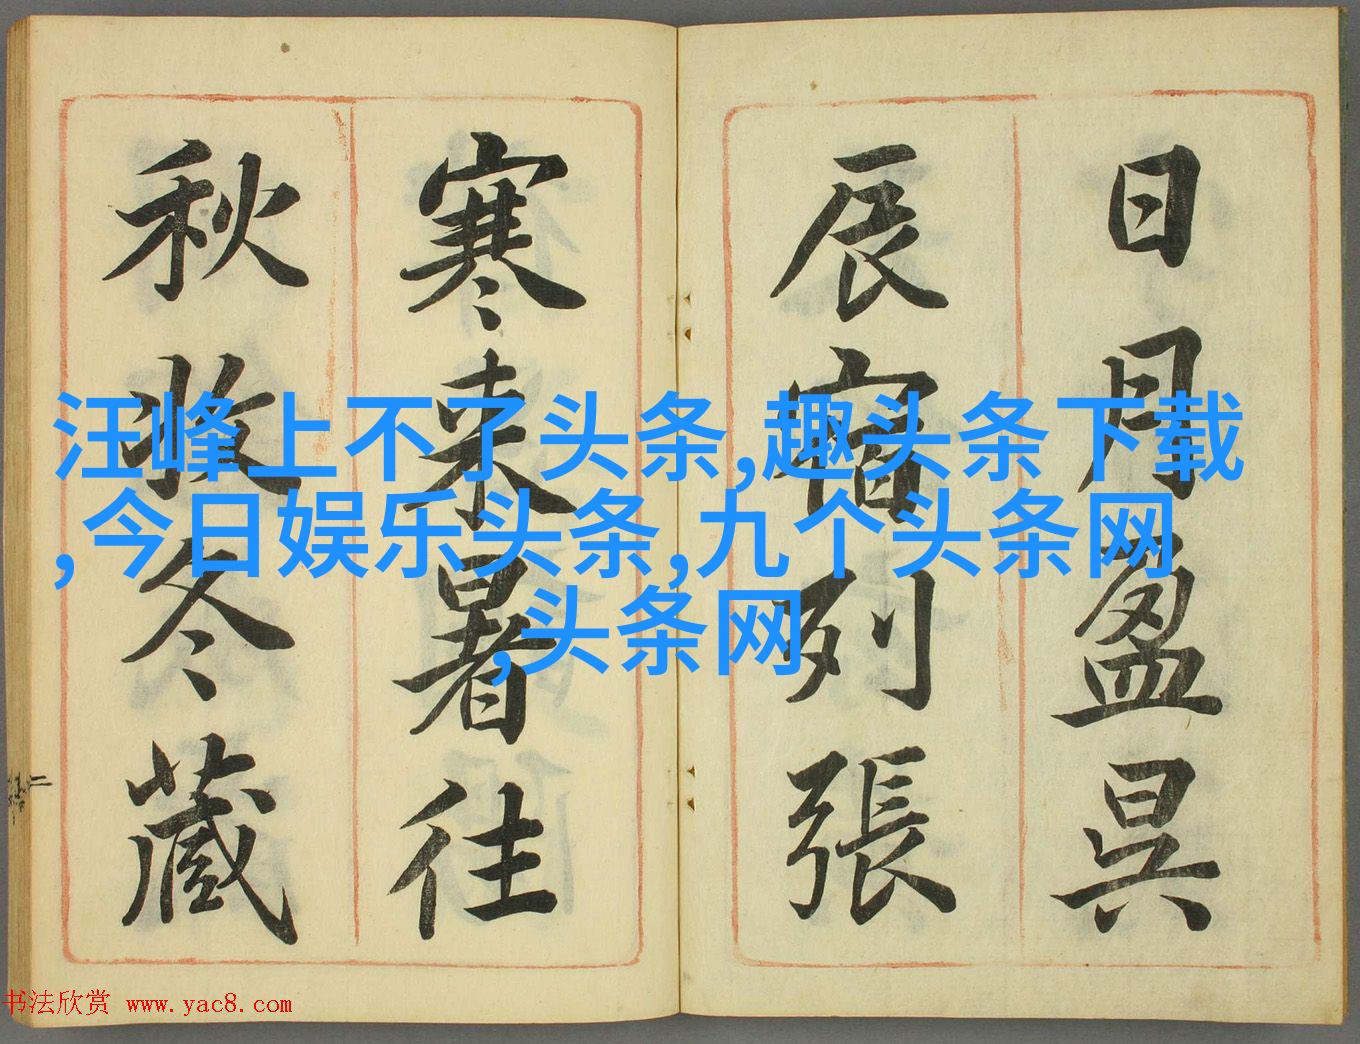 日月盈昃
辰宿列張
寒来暑往
秋收冬藏
汪峰上不了头条,趣头条下载
,今日娱乐头条,九个头条网
,头条网
书法欣赏 www.yac8.com